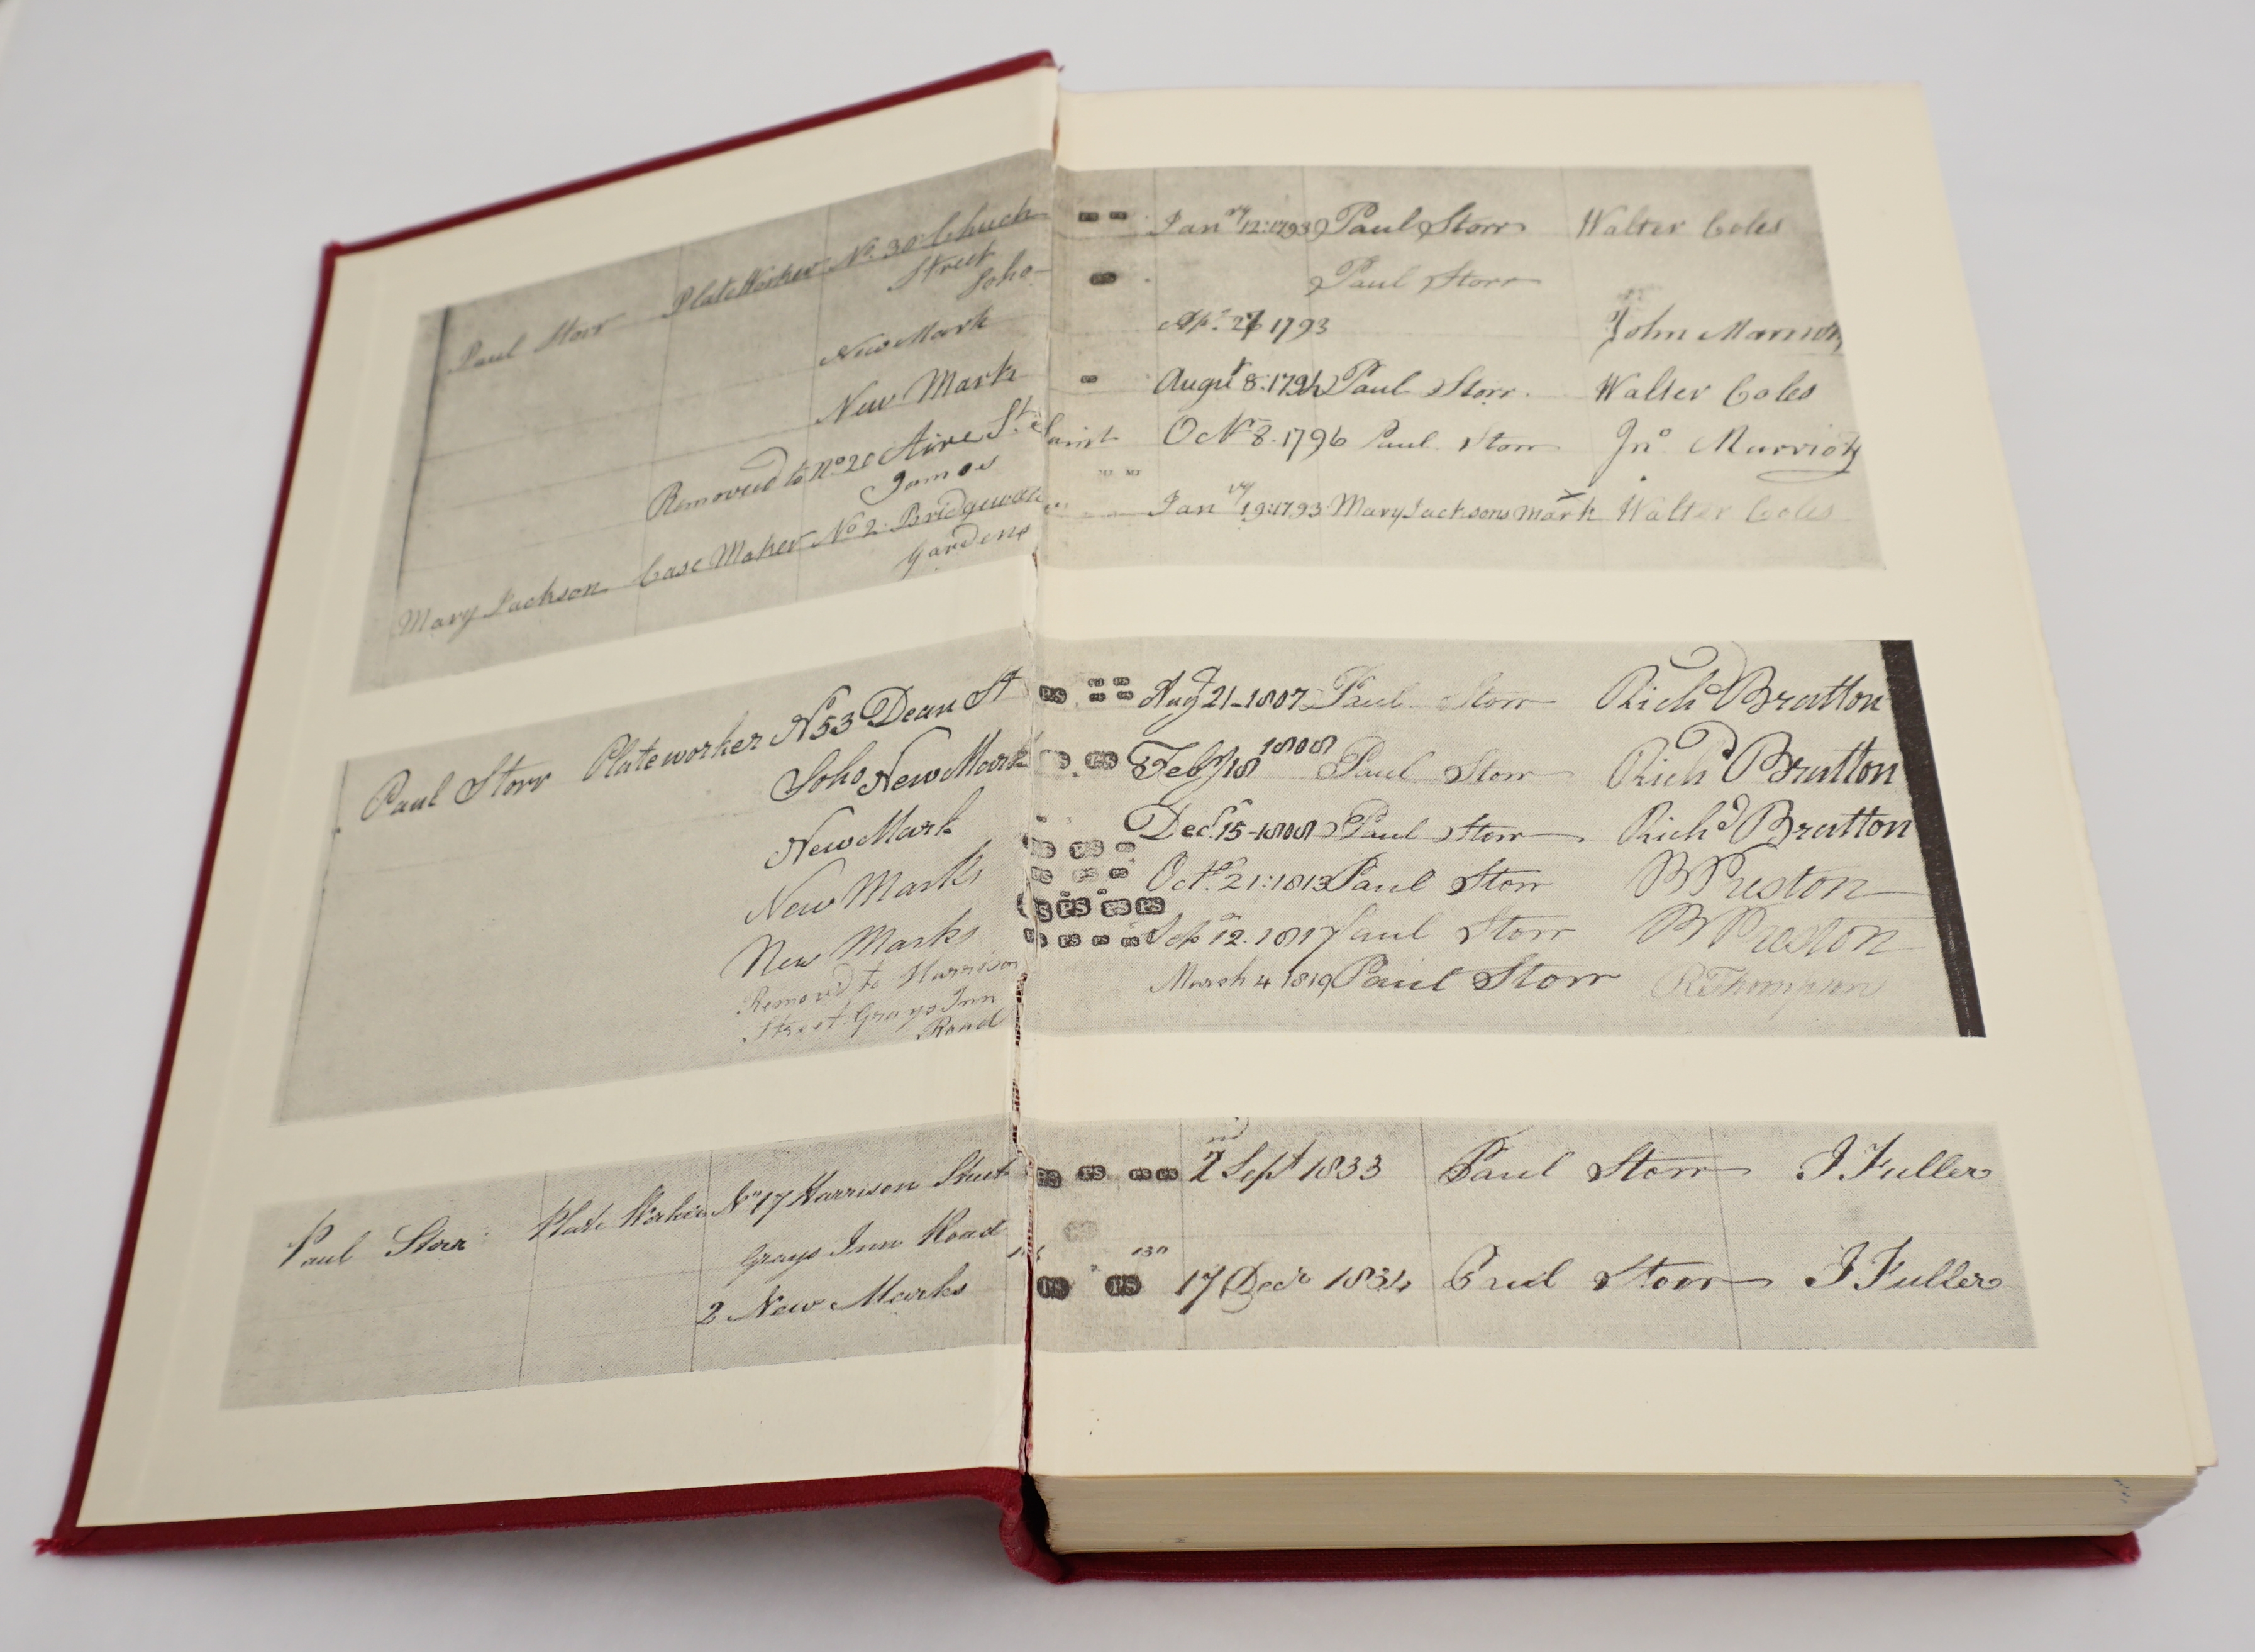 Paul Storr Plateworker No. 30 Chuch Janry 12: 1793 Paul Storr Walter Coles
Street
Soho
Paul Storr
New Mark Apl. 27 1793 John Marriott
New Mark Augut 8: 1794 Paul Storr. Walter Coles
Removed to No 20 Aire St. Saint Oct 8. 1796 Paul Storr Jno. Marriott
James
Mary Jackson Case Maker No 2 Janry 19: 1793 Mary Jacksons X mark Walter Coles
Gardens
Paul Storr Plateworker No 53 Dean St PS Aug 21-1807 Paul Storr Richd Bratton
Soho New Mark PS Feby 18 1808 Paul Storr Richd Bratton
New Mark Decr. 15-1808 Paul Storr Richd Bratton
New Marks Octr. 21: 1813 Paul Storr B Preston
PS PS PS
New Marks PS PS Sep 12. 1817 Paul Storr B Preston
Removd to Harrison March 4 1819 Paul Storr R Thompson
Street Grays Inn
Road
Paul Storr Plate Worker No 17 Harrison Street PS PS PS PS 2nd Sept 1833 Paul Storr J Fuller
Grays Inn Road
2 New Marks PS PS 17 Decr 1834 Paul Storr J Fuller